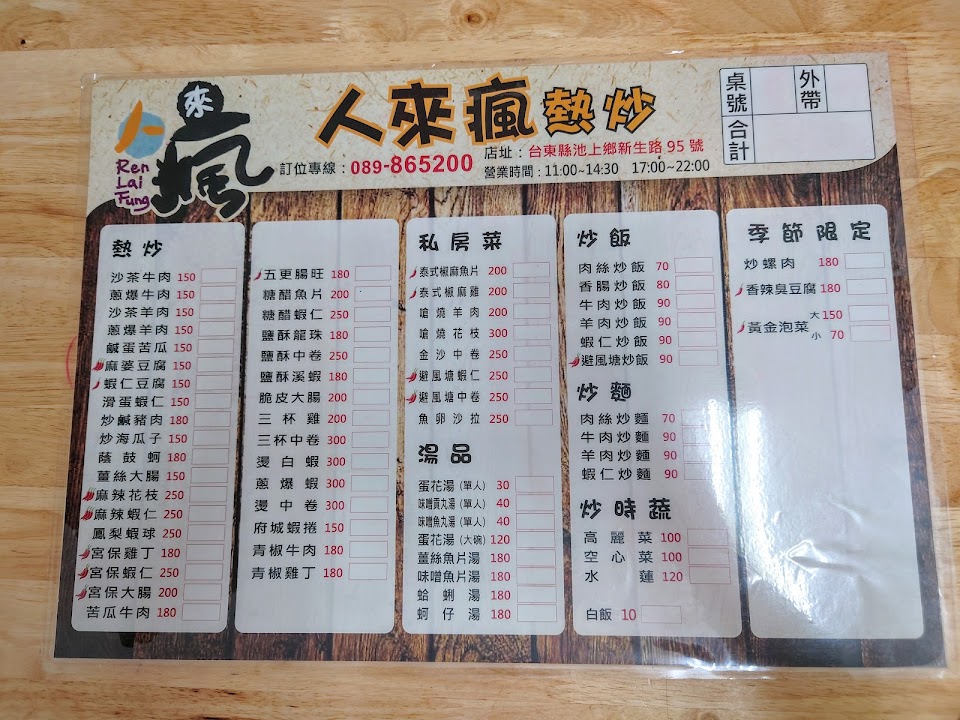 人來瘋熱炒
來
瘋
Ren
Lai
Fung
訂位專線：089-865200
店址：台東縣池上鄉新生路 95 號
營業時間：11:00~14:30 17:00~22:00
桌號
外帶
合計
熱炒
沙茶牛肉 150
蔥爆牛肉 150
沙茶羊肉 150
蔥爆羊肉 150
鹹蛋苦瓜 150
麻婆豆腐 150
蝦仁豆腐 150
滑蛋蝦仁 150
炒鹹豬肉 180
炒海瓜子 150
蔭鼓蚵 180
薑絲大腸 150
麻辣花枝 250
麻辣蝦仁 250
鳳梨蝦球 250
宮保雞丁 180
宮保蝦仁 250
宮保大腸 200
苦瓜牛肉 180
五更腸旺 180
糖醋魚片 200
糖醋蝦仁 250
鹽酥龍珠 180
鹽酥中卷 250
鹽酥溪蝦 180
脆皮大腸 200
三杯雞 200
三杯中卷 300
燙白蝦 300
蔥爆蝦 300
燙中卷 300
府城蝦捲 150
青椒牛肉 180
青椒雞丁 180
私房菜
泰式椒麻魚片 200
泰式椒麻雞 200
嗆燒羊肉 200
嗆燒花枝 300
金沙中卷 250
避風塘蝦仁 250
避風塘中卷 250
魚卵沙拉 250
湯品
蛋花湯(單人) 30
味噌貢丸湯(單人) 40
味噌魚丸湯(單人) 40
蛋花湯(大碗) 120
薑絲魚片湯 180
味噌魚片湯 180
蛤蜊湯 180
蚵仔湯 180
炒飯
肉絲炒飯 70
香腸炒飯 80
牛肉炒飯 90
羊肉炒飯 90
蝦仁炒飯 90
避風塘炒飯 90
炒麵
肉絲炒麵 70
牛肉炒麵 90
羊肉炒麵 90
蝦仁炒麵 90
炒時蔬
高麗菜 100
空心菜 100
水蓮 120
白飯 10
季節限定
炒螺肉 180
香辣臭豆腐 180
黃金泡菜 大 150
小 70